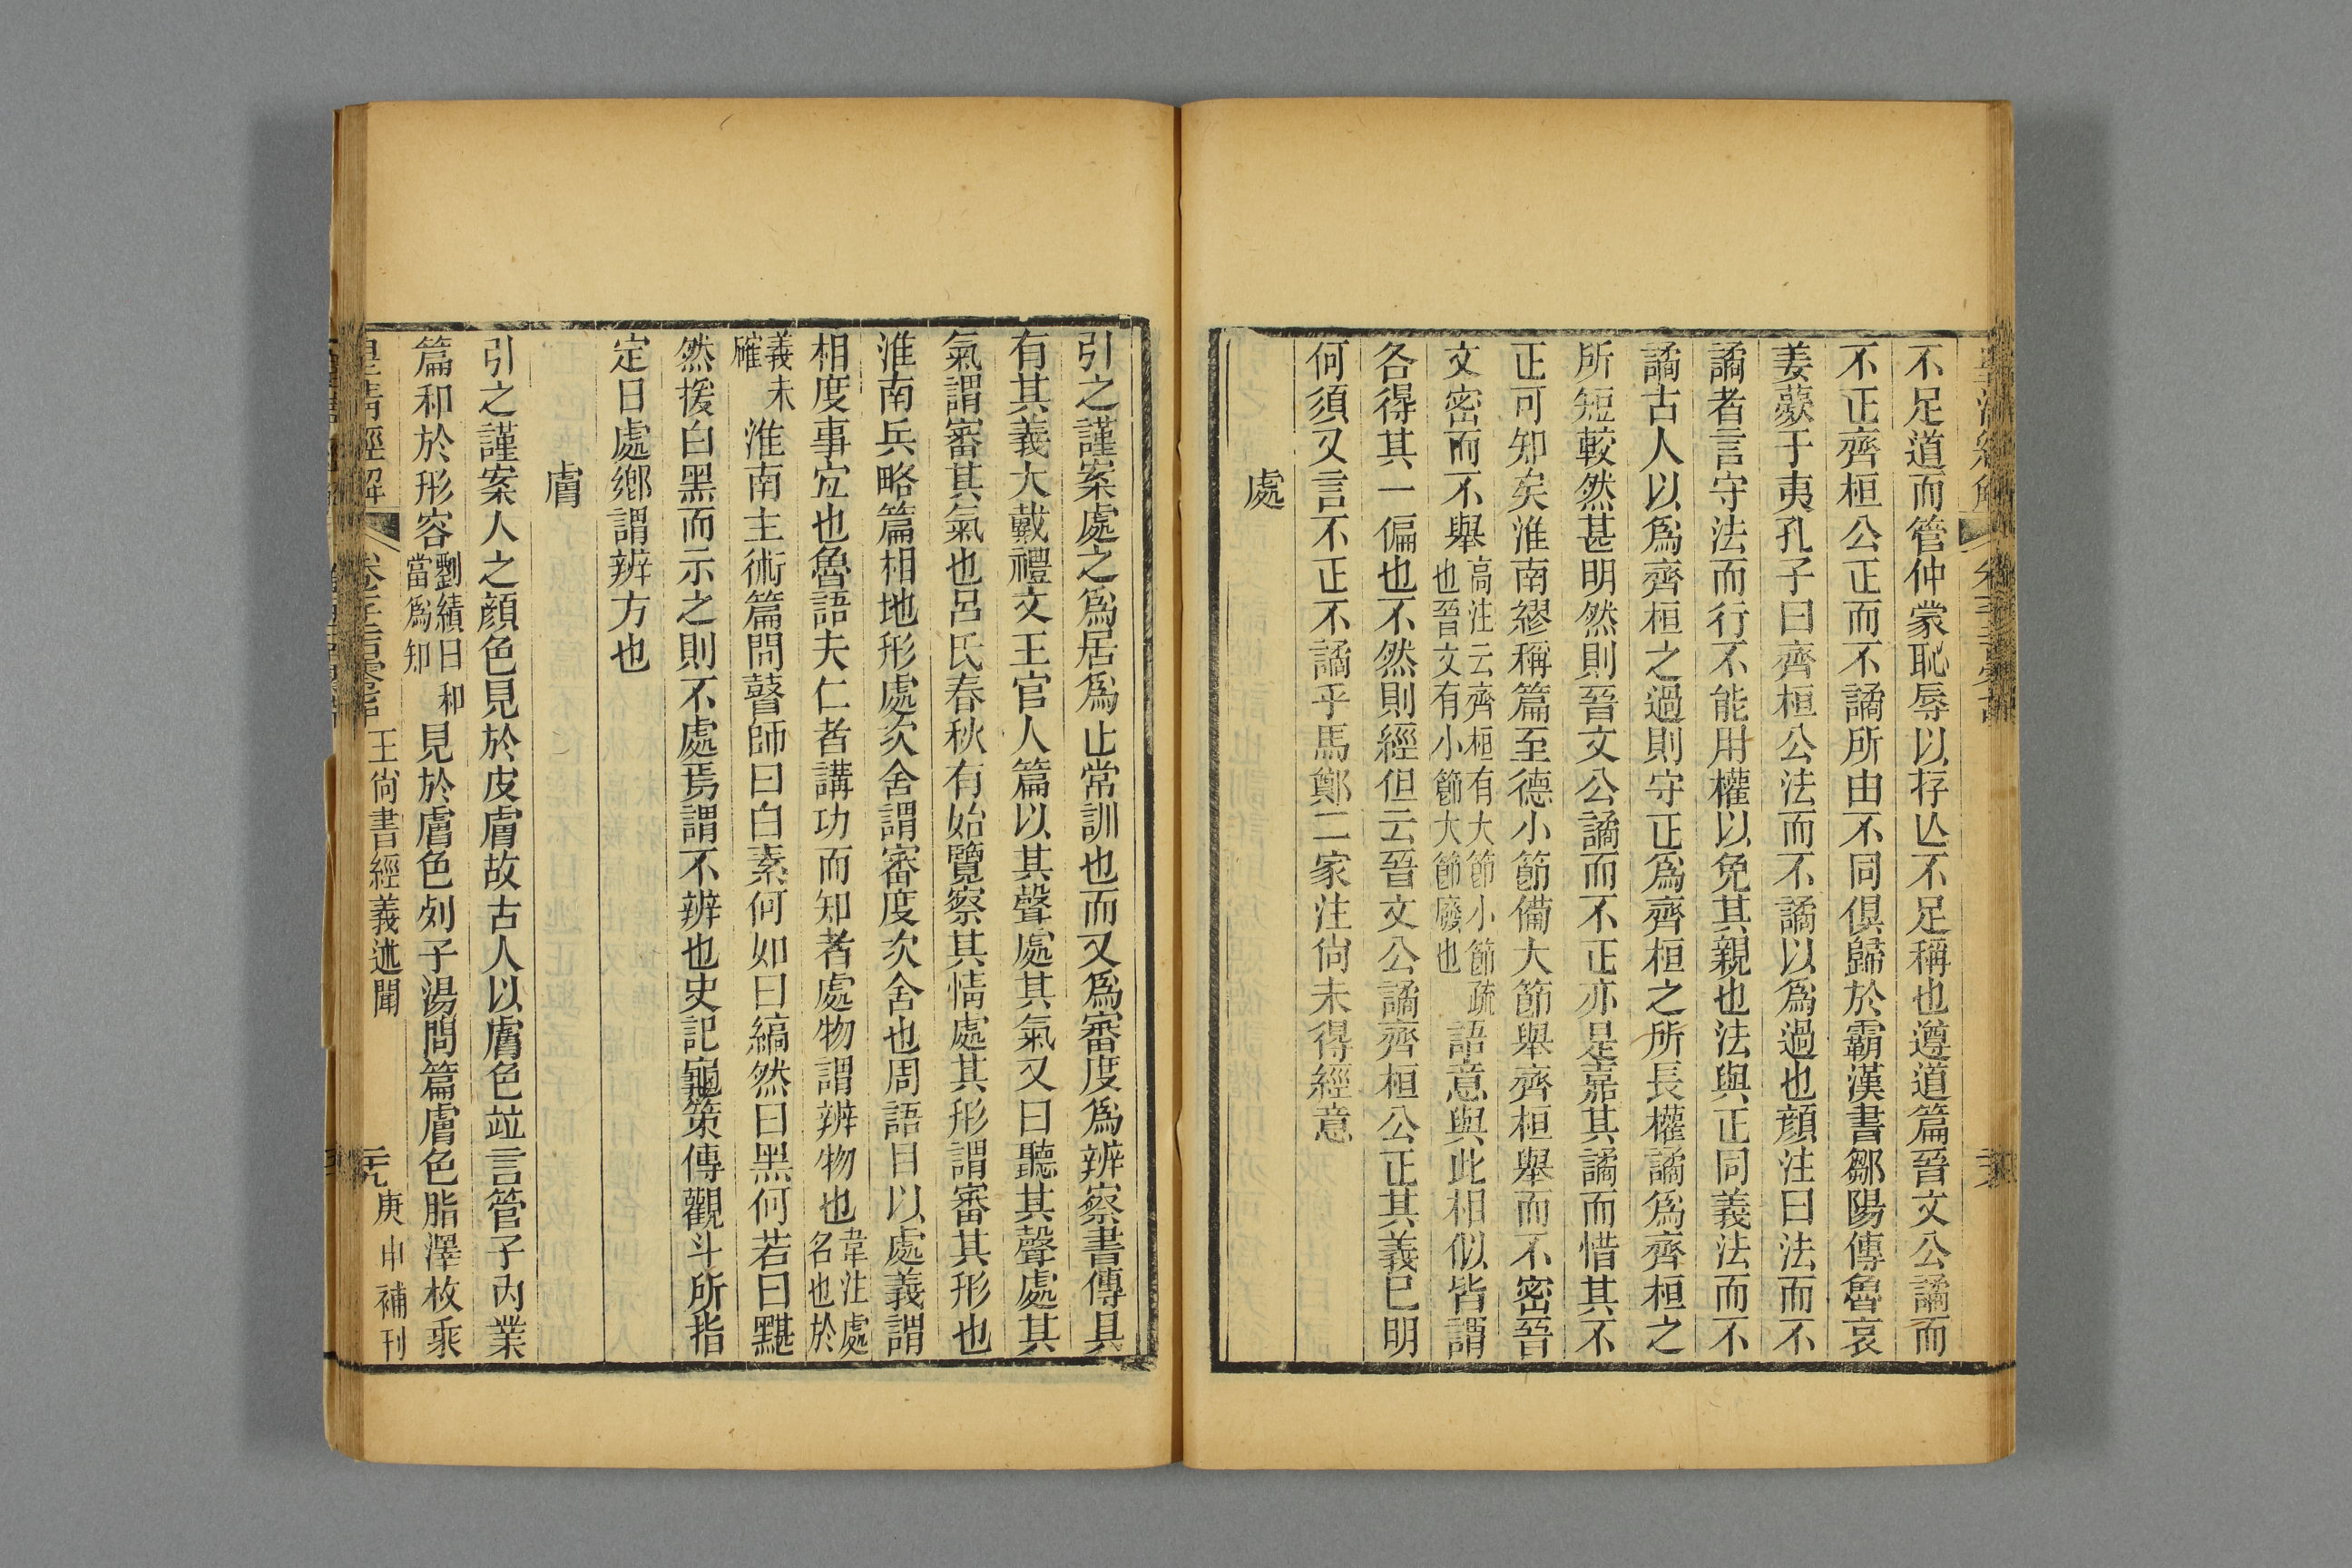 不足道而管仲蒙恥辱以存亾不足稱也遵道篇晉文公譎而
不正齊桓公正而不譎所由不同俱歸於霸漢書鄒陽傳魯哀
姜薨于夷孔子曰齊桓公法而不譎以爲過也顔注曰法而不
譎者言守法而行不能用權以免其親也法與正同義法而不
譎古人以爲齊桓之過則守正爲齊桓之所長權譎爲齊桓之
所短較然甚明然則晉文公譎而不正亦是嘉其譎而惜其不
正可知矣淮南繆稱篇至德小節備大節舉齊桓舉而不密晉
文密而不舉高注云齊桓有大節小節疏也晉文有小節大節廢也語意與此相似皆謂
各得其一偏也不然則經但云晉文公譎齊桓公正其義已明
何須又言不正不譎乎馬鄭二家注尙未得經意
處
引之謹案處之爲居爲止常訓也而又爲審度爲辨察書傳具
有其義大戴禮文王官人篇以其聲處其氣又曰聽其聲處其
氣謂審其氣也呂氏春秋有始覽察其情處其形謂審其形也
淮南兵略篇相地形處次舍謂審度次舍也周語目以處義謂
相度事宜也魯語夫仁者講功而知者處物謂辨物也韋注處名也於
義未確淮南主術篇問瞽師曰白素何如曰縞然曰黑何若曰黮
然援白黑而示之則不處焉謂不辨也史記龜策傳觀斗所指
定日處鄉謂辨方也
膚
引之謹案人之顔色見於皮膚故古人以膚色竝言管子內業
篇和於形容劉績曰和當爲知見於膚色列子湯問篇膚色脂澤枚乘
皇淸經解
王尙書經義述聞
二十九
庚申補刊